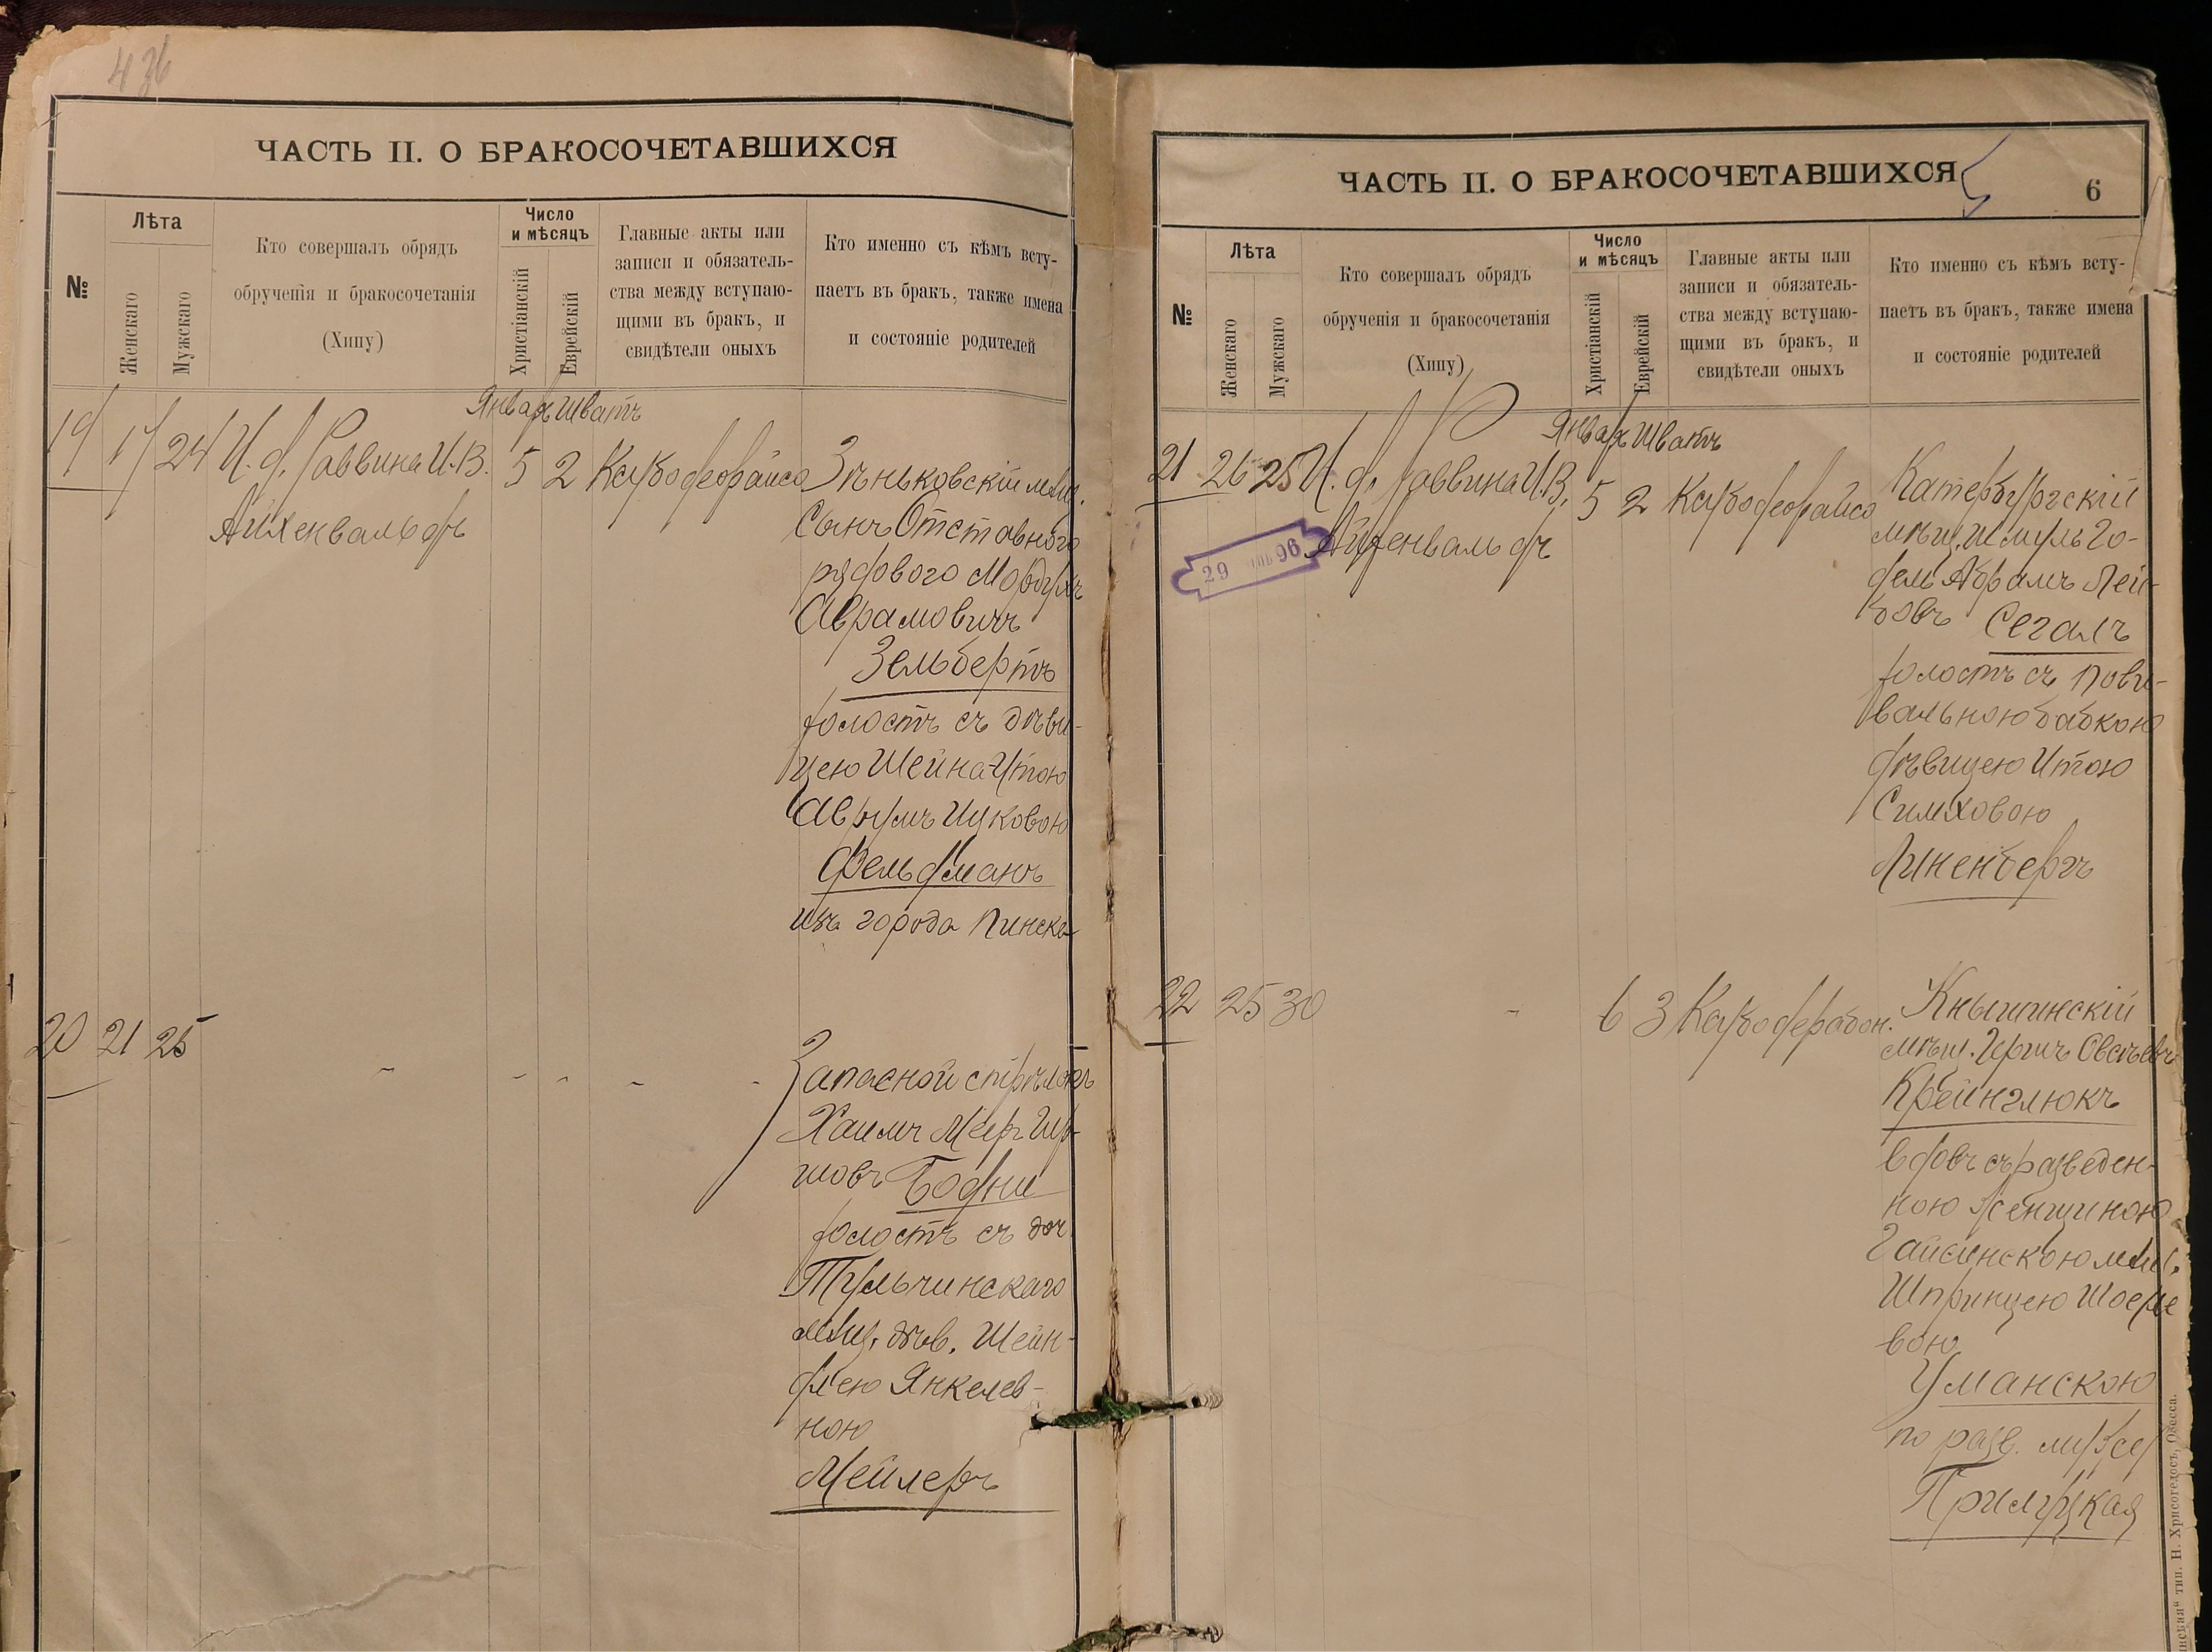 436
ЧАСТЬ II. О БРАКОСОЧЕТАВШИХСЯ
№
Лѣта
Женскаго
Мужскаго
Кто совершалъ обрядъ
обрученія и бракосочетанія
(Хипу)
Число
и мѣсяцъ
Христіанскій
Еврейскій
Главные акты или
записи и обязатель-
ства между вступаю-
щими въ бракъ, и
свидѣтели оныхъ
Кто именно съ кѣмъ всту-
паетъ въ бракъ, также имена
и состояніе родителей
Январь Шватъ
19 17 24 И. д. Раввина И.В. 5 2
Айхенвальдъ
Зѣньковскій мѣщ.
Сынъ Отставного
рядового Мордухъ
Аврамовичъ
Зельбертъ
холостъ съ дѣви-
цею Шейна-Итою
Аврумъ Ицковою
Фельдманъ
изъ города Пинска
20 21 25 - - - - -
Запасной стрѣлокъ
Хаимъ Меер Гер-
шовъ Бодни
холостъ съ доч
Тульчинскаго
мѣщ. дѣв. Шейн-
длею Янкелев-
ною
Мейлеръ
ЧАСТЬ II. О БРАКОСОЧЕТАВШИХСЯ
6
№
Лѣта
Женскаго
Мужскаго
Кто совершалъ обрядъ
обрученія и бракосочетанія
(Хипу)
Число
и мѣсяцъ
Христіанскій
Еврейскій
Главные акты или
записи и обязатель-
ства между вступаю-
щими въ бракъ, и
свидѣтели оныхъ
Кто именно съ кѣмъ всту-
паетъ въ бракъ, также имена
и состояніе родителей
Январь Шватъ
21 26 25 И. д. Раввина И.В. 5 2
Айхенвальдъ
29 96
Катербургскій
мѣщ. Шмуль Го-
дель Абрамъ Лей-
бовъ Сегалъ
холостъ съ пови-
вальною бабкою
дѣвицею Итою
Симховою
Линенбергъ
22 25 30 - 6 3
Кнышинскій
мѣщ. Гершъ Овсѣевъ
Крейнглюкъ
вдовъ съ разведен-
ною женщиною
Гайсинскою мѣщ.
Шпринцею Шоеле
вою
Уманскою
по разв. мужу
Прилуцкая
тип. Н. Хрисогелосъ, Одесса.